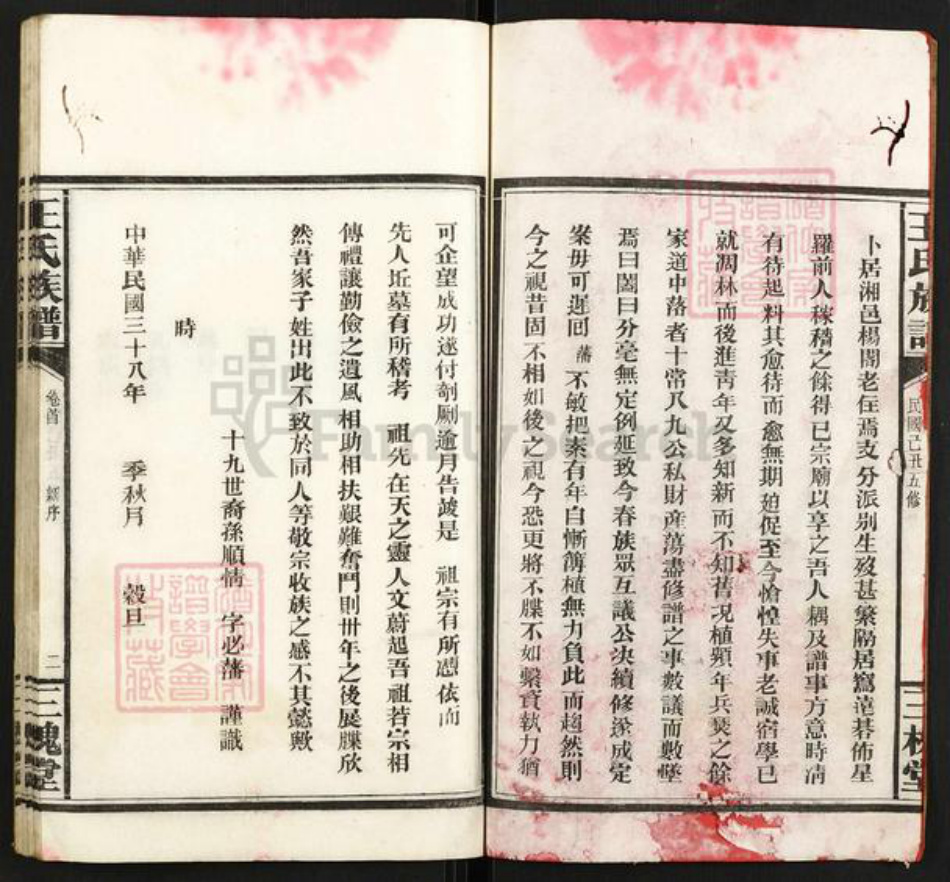 王氏族譜
民國己丑五修
三槐堂
卜居湘邑楊閣老住焉支分派别生歿甚繁隔居寫遠碁佈星
羅前人稼穡之餘得已宗廟以享之吾人耦及譜事方意時凊
有待起料其愈待而愈無期廹促至今愴惶失事老誠宿學已
就凋林而後進青年又多知新而不知舊况植頻年兵燹之餘
家道中落者十常八九公私財產蕩盡修譜之事數議而數墜
焉曰闔曰分毫無定例延致今春族眾互議公决續修梁成定
案毋可遲回 藩 不敏把素有年自慚蒲植無力負此而趨然則
今之視昔固不相如後之視今恐更將不牒不如繄資執力猶
可企望成功遂付剞劂逾月告竣是 祖宗有所憑依而
先人坵墓有所稽考 祖先在天之靈人文蔚起吾祖若宗相
傳禮讓勤儉之遺風相助相扶艱難奮鬥則卅年之後展牒欣
然吾家子姓出此不致於同人等敬宗收族之感不其懿歟
時
十九世裔孫順情 字必藩 謹識
中華民國三十八年 季秋月 穀旦
王氏族譜
卷首
新序
二
三槐堂
FamilySearch